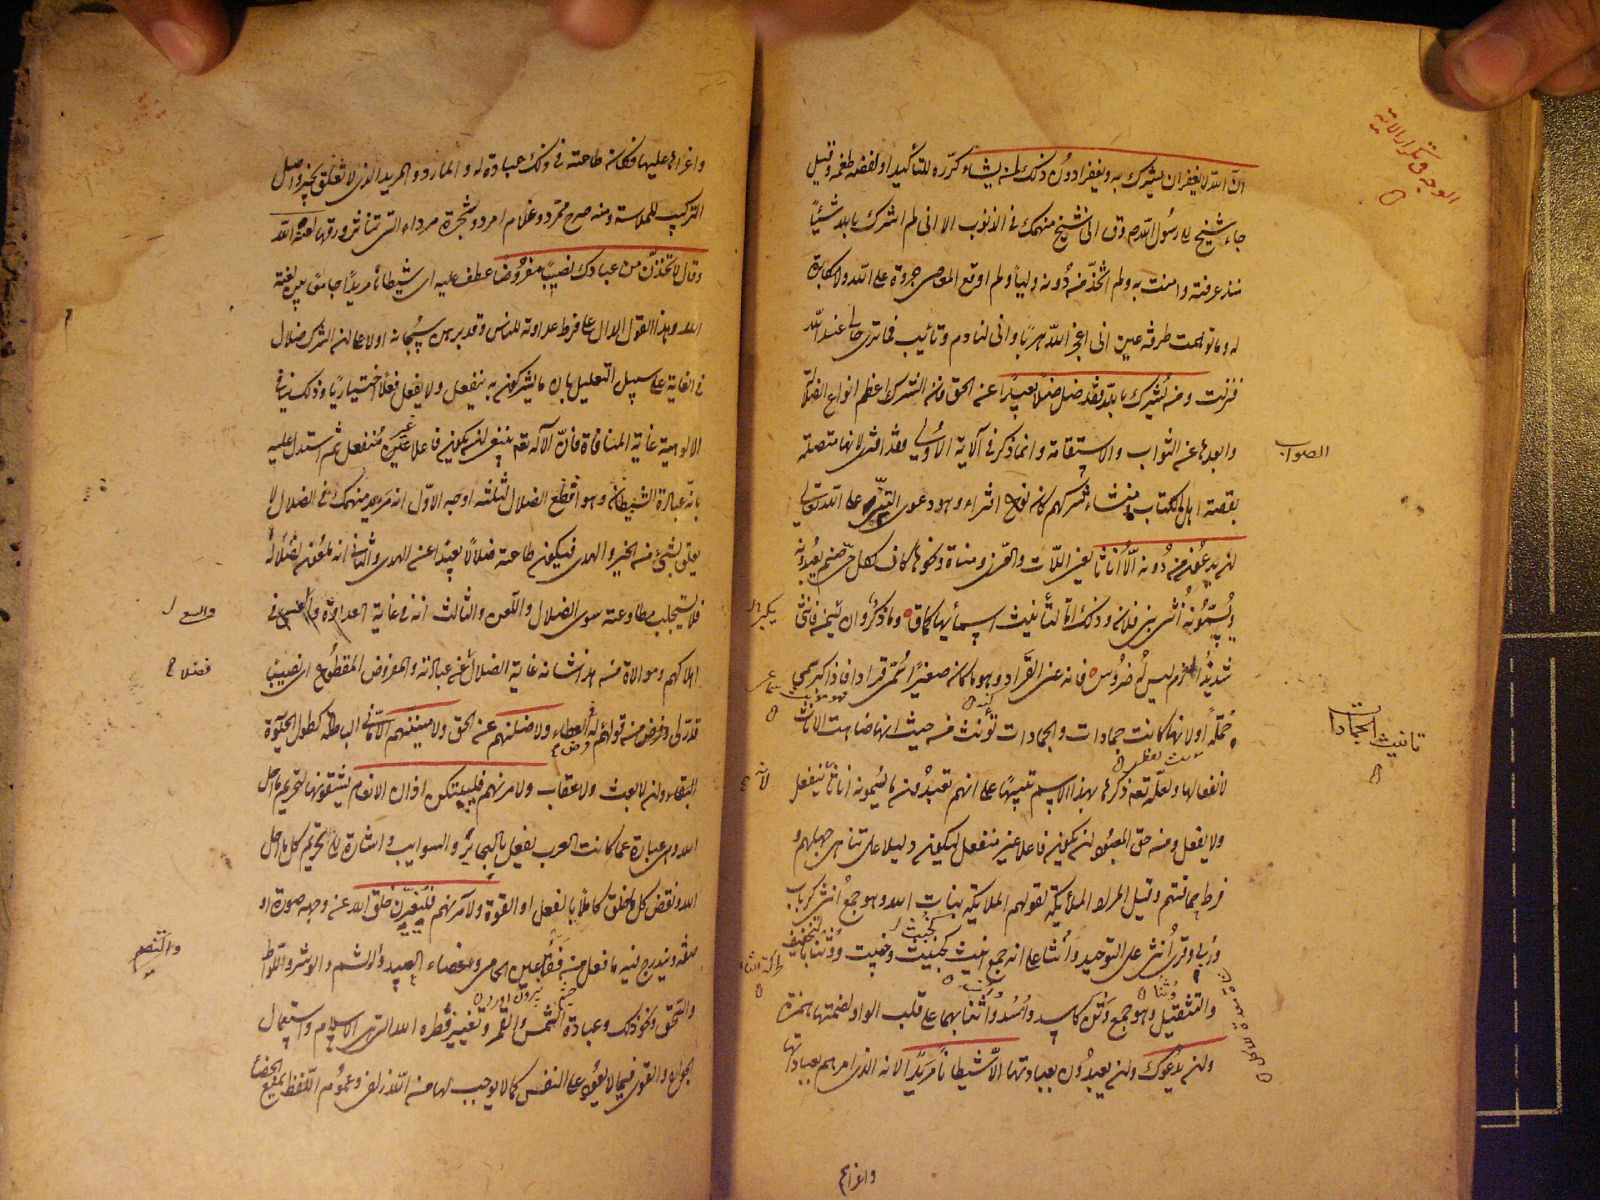 الوجه في تكرار الآية
ان الله لا يغفر ان يشرك به ويغفر ما دون ذلك لمن يشاء كرره للتاكيد او لقصة طعمة وقيل
جاء شيخ الى رسول الله وقال اني شيخ منهمك في الذنوب الا اني لم اشرك بالله شيئا
منذ عرفته وامنت به ولم اتخذ من دونه وليا ولم اوقع المعاصي جرءة على الله ولا مكابرة
له وما توهمت طرفة عين اني اعجز الله هربا واني لنادم وتائب فما ترى حالي عند الله
فنزلت ومن يشرك بالله فقد ضل ضلالا بعيدا عن الحق فان الشرك اعظم انواع الضلالة
وابعدها عن الثواب والاستقامة وانما ذكر في الآية الاولى فقد افترى لانها متصلة
الصواب
بقصة اهل الكتاب ومنشاء شركهم كان نوع افتراء وهو دعوى التبني على الله تعالى
ان يدعون من دونه الا اناثا يعني اللات والعزى ومناة ونحوها كان لكل حي صنم يعبدونه
ويسمونه انثى بني فلان وذلك اما لتأنيث اسمائها كما قال وما ذكر فان يسمن فانثى
شديد الازم ليس له ضروس فانه عنى القراد وهو ما كان صغيرا سمي قرادا فاذا كبر سمي
حلمة او لانها كانت جمادات والجمادات تؤنث من حيث انها ضاهت الاناث
تانيث الجمادات
لانفعالها ولعله تعه ذكرها بهذا الاسم تنبيها على انهم يعبدون ما يسمونه اناثا لانه ينفعل
ولا يفعل ومن حق المعبود ان يكون فاعلا غير منفعل ليكون دليلا على تناهي جهلهم و
فرط حماقتهم وقيل المراد الملائكة لقولهم الملايكة بنات الله وهو جمع انثى كرباب
وربى وقرئ انثى على التوحيد وأنثا على انه جمع انيث كخبث وخبيث ووثنا بالتخفيف
والتثقيل وهو جمع وثن كاسد واسد وأثنا بهما على قلب الواو لضمتها همزة
وان يدعون وان يعبدون بعبادتها الا شيطانا مريدا لانه الذي امرهم بعبادتها
واغراهم
واغراهم عليها فكان طاعته في ذلك عبادة له والمارد والمريد الذي لا يعلق بخير واصل
التركيب للملاسة ومنه صرح ممرد وغلام امرد وشجرة مرداء التي تناثر ورقها لعنه الله
وقال لاتخذن من عبادك نصيبا مفروضا عطف عليه اي شيطانا مريدا جامعا بين لعنة
الله وهذا القول الدال على فرط عداوته للناس وقد برهن سبحانه اولا على ان الشرك ضلال
في الغاية على سبيل التعليل بان ما يشركون به ينفعل ولا يفعل فعلا اختياريا وذلك ينافي
الالوهية غاية المنافاة فان الآله ينبغي ان يكون فاعلا غير منفعل ثم استدل عليه
بانه عبادة الشيطان وهو افظع الضلال لثلثة اوجه الاول انه مريد منهمك في الضلال لا
يعلق بشيء من الخير والهدى فيكون طاعته ضلالا بعيدا عن الهدى والثاني انه ملعون لضلاله
فلا يستجلب مطاوعته سوى الضلال واللعن والثالث انه في غاية العداوة والسعي في
والسعي
اهلاكهم وموالاة من هذا شانه غاية الضلال فضلا عن عبادته والمفروض المقطوع اي نصيبا
فضلا
قدر لي وفرض من قولهم فرض له في العطاء ولاضلنهم عن الحق ولامنينهم الاماني الباطلة كطول الحيوة
البقاء وان لا بعث ولا عقاب ولآمرنهم فليبتكن اذان الانعام يشقونها لتحريم ما احل
الله وهي عبارة عما كانت العرب يفعل بالبحائر والسوايب واشارة الى تحريم كل ما احل
الله ونقص كل ما خلق كاملا بالفعل او القوة ولآمرنهم فليغيرن خلق الله عن وجهه صورة او
صفة ويندرج فيه ما فعل من فقاء عين الحامي وخصاء العبيد والوشم والوشر واللواط
والسحق ونحو ذلك وعبادة الشمس والقمر وتغيير فطرة الله التي هي الاسلام واستعمال
الجوارح والقوى فيما لا يعود على النفس كمالا يوجب لها من الله زلفى وعموم اللفظ يمنع الخصاء